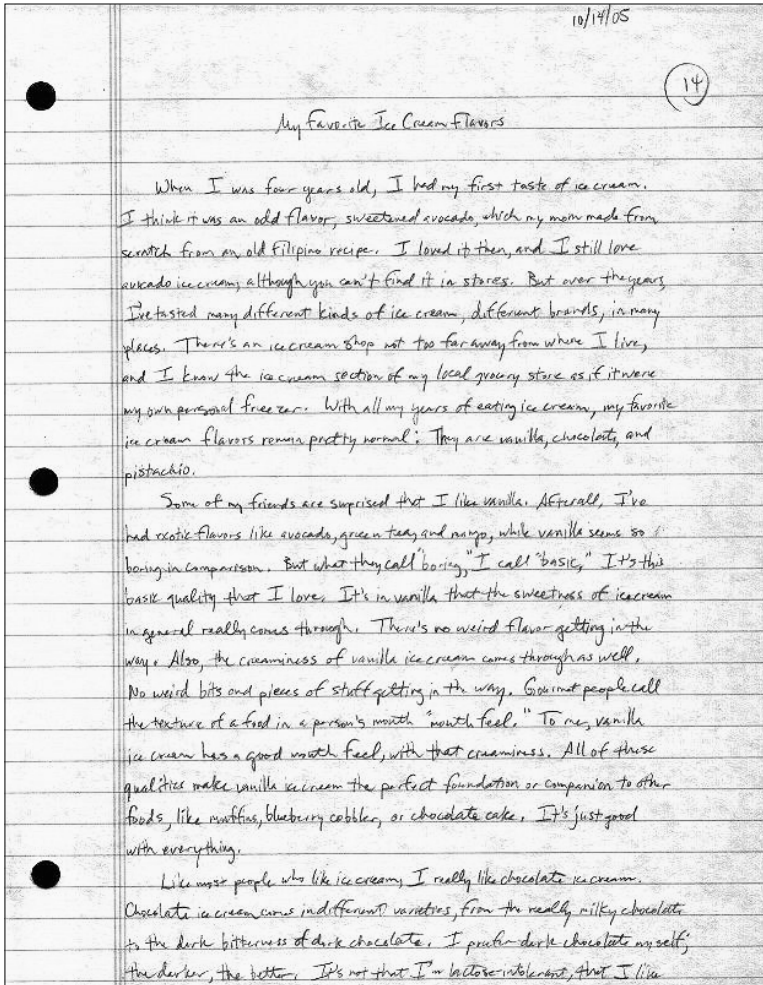 10/14/05
14
My Favorite Ice Cream Flavors
When I was four years old, I had my first taste of ice cream.
I think it was an odd flavor, sweetened avocado, which my mom made from
scratch from an old Filipino recipe. I loved it then, and I still love
avocado ice cream, although you can't find it in stores. But over the years,
I've tasted many different kinds of ice cream, different brands, in many
places. There's an ice cream shop not too far away from where I live,
and I know the ice cream section of my local grocery store as if it were
my own personal freezer. With all my years of eating ice cream, my favorite
ice cream flavors remain pretty normal: They are vanilla, chocolate, and
pistachio.
Some of my friends are surprised that I like vanilla. Afterall, I've
had exotic flavors like avocado, green tea, and mango, while vanilla seems so
boring in comparison. But what they call "boring," I call "basic." It's this
basic quality that I love. It's in vanilla that the sweetness of ice cream
in general really comes through. There's no weird flavor getting in the
way. Also, the creaminess of vanilla ice cream comes through as well.
No weird bits and pieces of stuff getting in the way. Gourmet people call
the texture of a food in a person's mouth "mouth feel." To me, vanilla
ice cream has a good mouth feel, with that creaminess. All of these
qualities make vanilla ice cream the perfect foundation or companion to other
foods, like muffins, blueberry cobbler, or chocolate cake. It's just good
with everything.
Like most people who like ice cream, I really like chocolate ice cream.
Chocolate ice cream comes in different varieties, from the really milky chocolate
to the dark bitterness of dark chocolate. I prefer dark chocolate myself;
the darker, the better. It's not that I'm lactose-intolerant, that I like